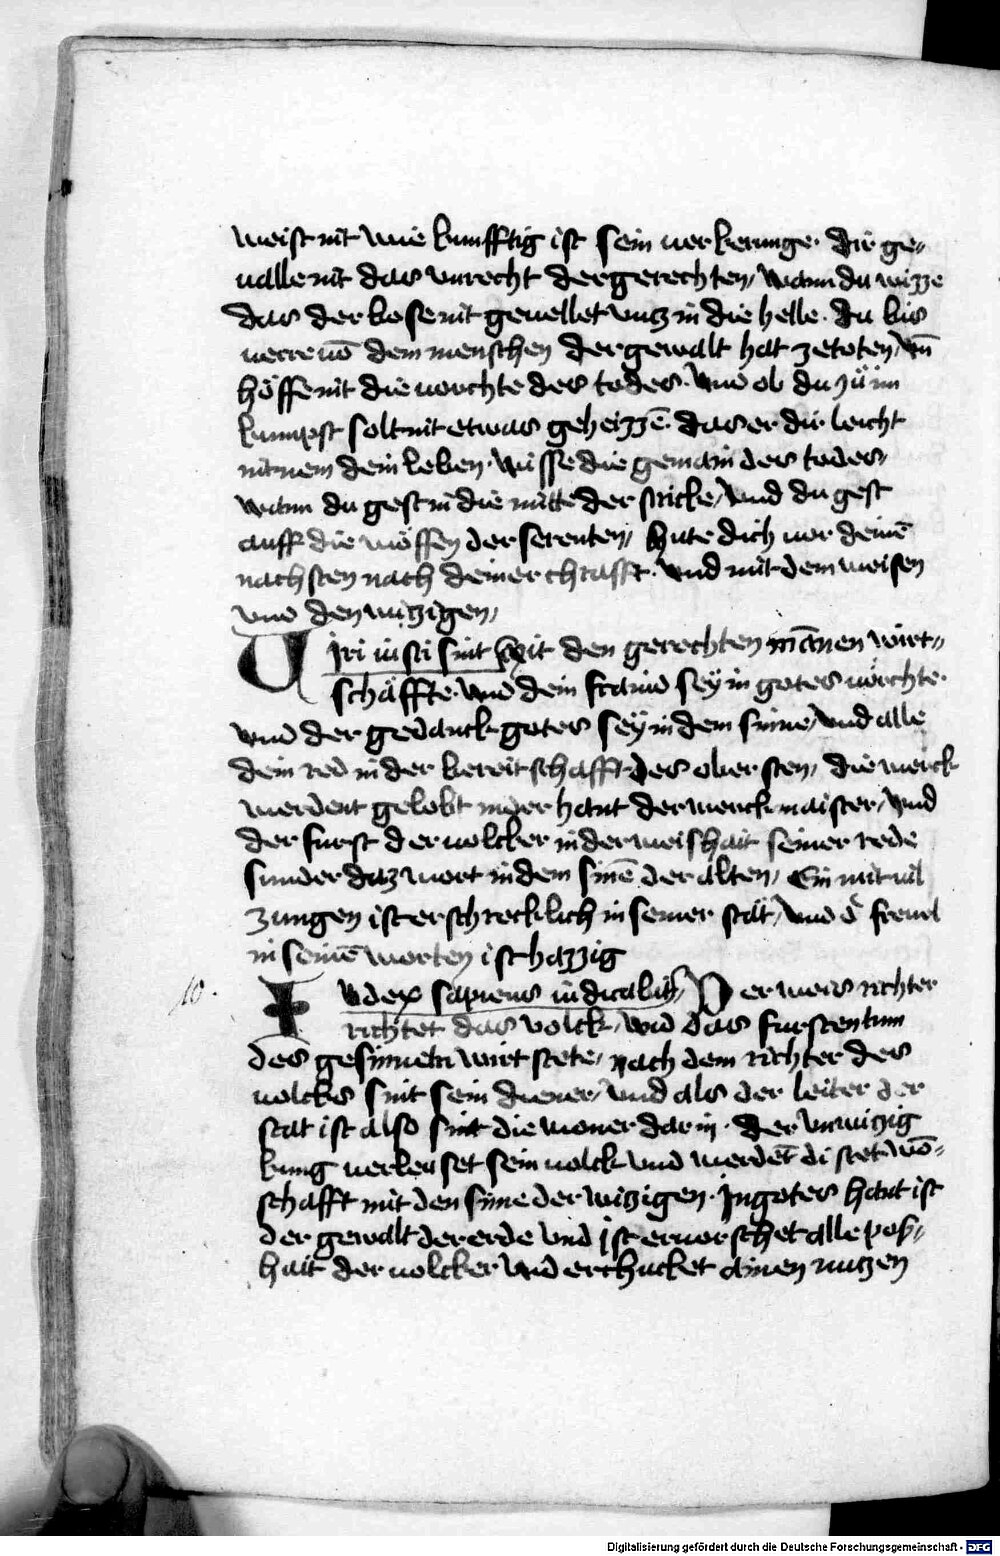 weist nit wie kunfftig ist sein verkerunge. dir ge„
ualle nit das vnrecht der gerechten, wann du wizze
das der bose nit geuellet vntz in die helle. du bis
verre vō dem menschen der gewalt hat zetoten, vn̄
höffe nit die vorchte des todes. vnd ob du zů im
kumpst solt nit etwas geheizzē. das er dir leicht
nit nem dein leben. wisse die gemain des todes,
wann du gest in die mitte der stricke, vnd du gest
auff die waffen der serenten, hute dich vor deinē
nachsten nach deiner chrafft. vnd mit dem weisen
vnd den witzigen,
Viri iusti sint Mit den gerechten mānen wirt„
schäffte. vnd dein fraiud seÿ in gotes vörchte.
vnd der gedanck gotes seÿ in dem sinne, vnd alle
dein red in der bereitschafft des obersten, die werck
werdent gelobt in der hant der werckmaister, vnd
der furst der volcker in der weishait seiner rede
sunder daz wort in dem sinē der alten, Ein mit vil
zungen ist erschrecklich in seiner stat, vnd d͛ freuel
in seinē worten ist hazzig
10.
Iudex sapiens iudicabit Der weis richter
richtet das volck, vnd das furstentum
des gesinneten wirt stete, nach dem richter des
volckes sint sein diener, vnd als der leiter der
stat ist also sint die woner darin. der vnwitzig
kunig verleuset sein volck vnd werdēt di stet wō„
schafft mit den sinne der witzigen. In gotes hant ist
der gewalt der erde vnd ist ervorschet alle pos„
hait der volcker vnd erchucket ainen nutzen
Digitalisierung gefördert durch die Deutsche Forschungsgemeinschaft - DFG